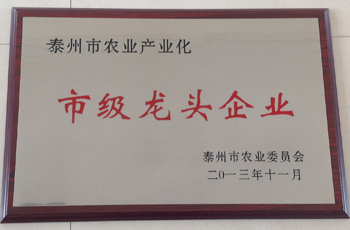 泰州市农业产业化
市级龙头企业
泰州市农业委员会
二0一三年十一月